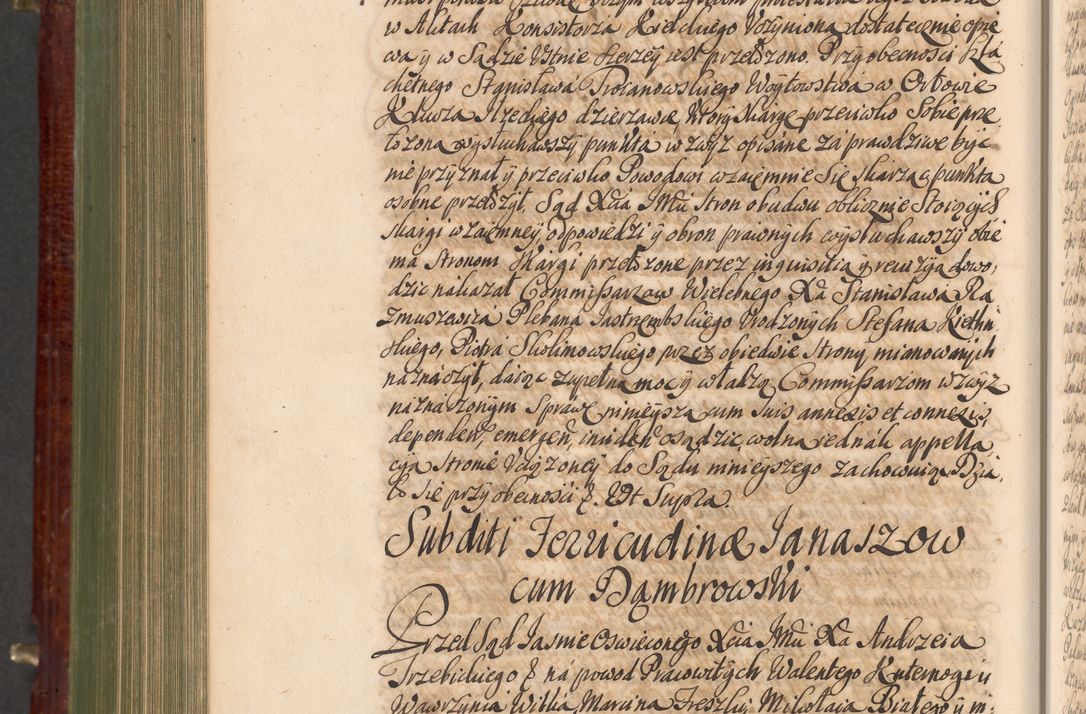 w Aktach Konsistorza Kieleckiego Uczyniona dostatecznie opie
wa y w Sądzie Ustnie szerzey iest przełożono. Przy obecności szla
chetnego Stanisława Piotanowskiego Woytowstwa w Orłowie
Klucza Iłzeckiego dzierzawcę, ktory Skargę przeciwko Sobie prze
łożoną wysłuchawszy punkta w zwyż opisane za prawdziwe być
nie przyznał y przeciwko Powodowi wzaiemnie się skarżąc punkta
osobne przełożył. Sąd Xcia JMci stron obudwu oblicznie Stoiących
skargi wzaiemney, odpowiedzi y obron prawnych wysłuchawszy obie
ma Stronom skargi przełożone przez inquisitią y rewizyą dowo,
dzic nakazał Commissarzow Wielebnego Xa Stanisława Ra
zmuszewicza Plebana Jastrzembskiego Urodzonych Stefana
skiego, Piotra Skolimowskiego przez obiedwie Strony, mianowanych
naznaczył, daiąc zupełną moc y władzą Commissarzom w zwyż
naznaczonym Sprawę ninieyszą cum suis annexis et connexis,
dependen, emergen, inciden osądzic, wolna iednak appella
cya Stronie Uciążoney do Sądu ninieyszego zachowuiąc Dzia,
ło się przy obecności &. Ut Supra.
Subditi Ferricudinæ Janaszow
cum Dąmbrowski
Przed Sąd Jasnie Oswieconego Xcia JMci Xa Andrzeia
Trzebickiego & na powod Pracowitych Walentego Kuternogi y
Wawrzynia Wilka, Marcina Freszlu, Mikołaia Białego y